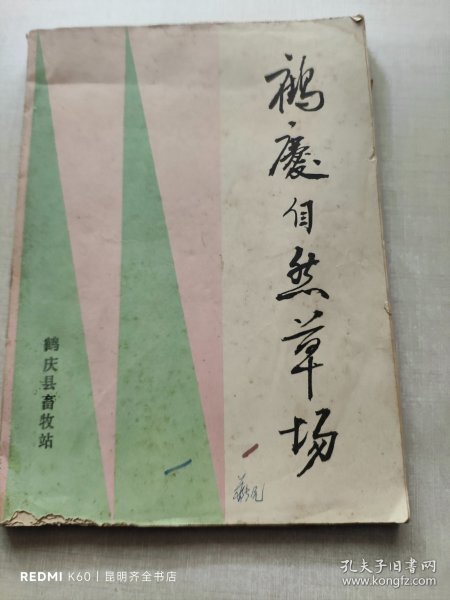 鶴慶自然草场
鹤庆县畜牧站
REDMI K60 | 昆明齐全书店
孔夫子旧书网
www.kongfz.com